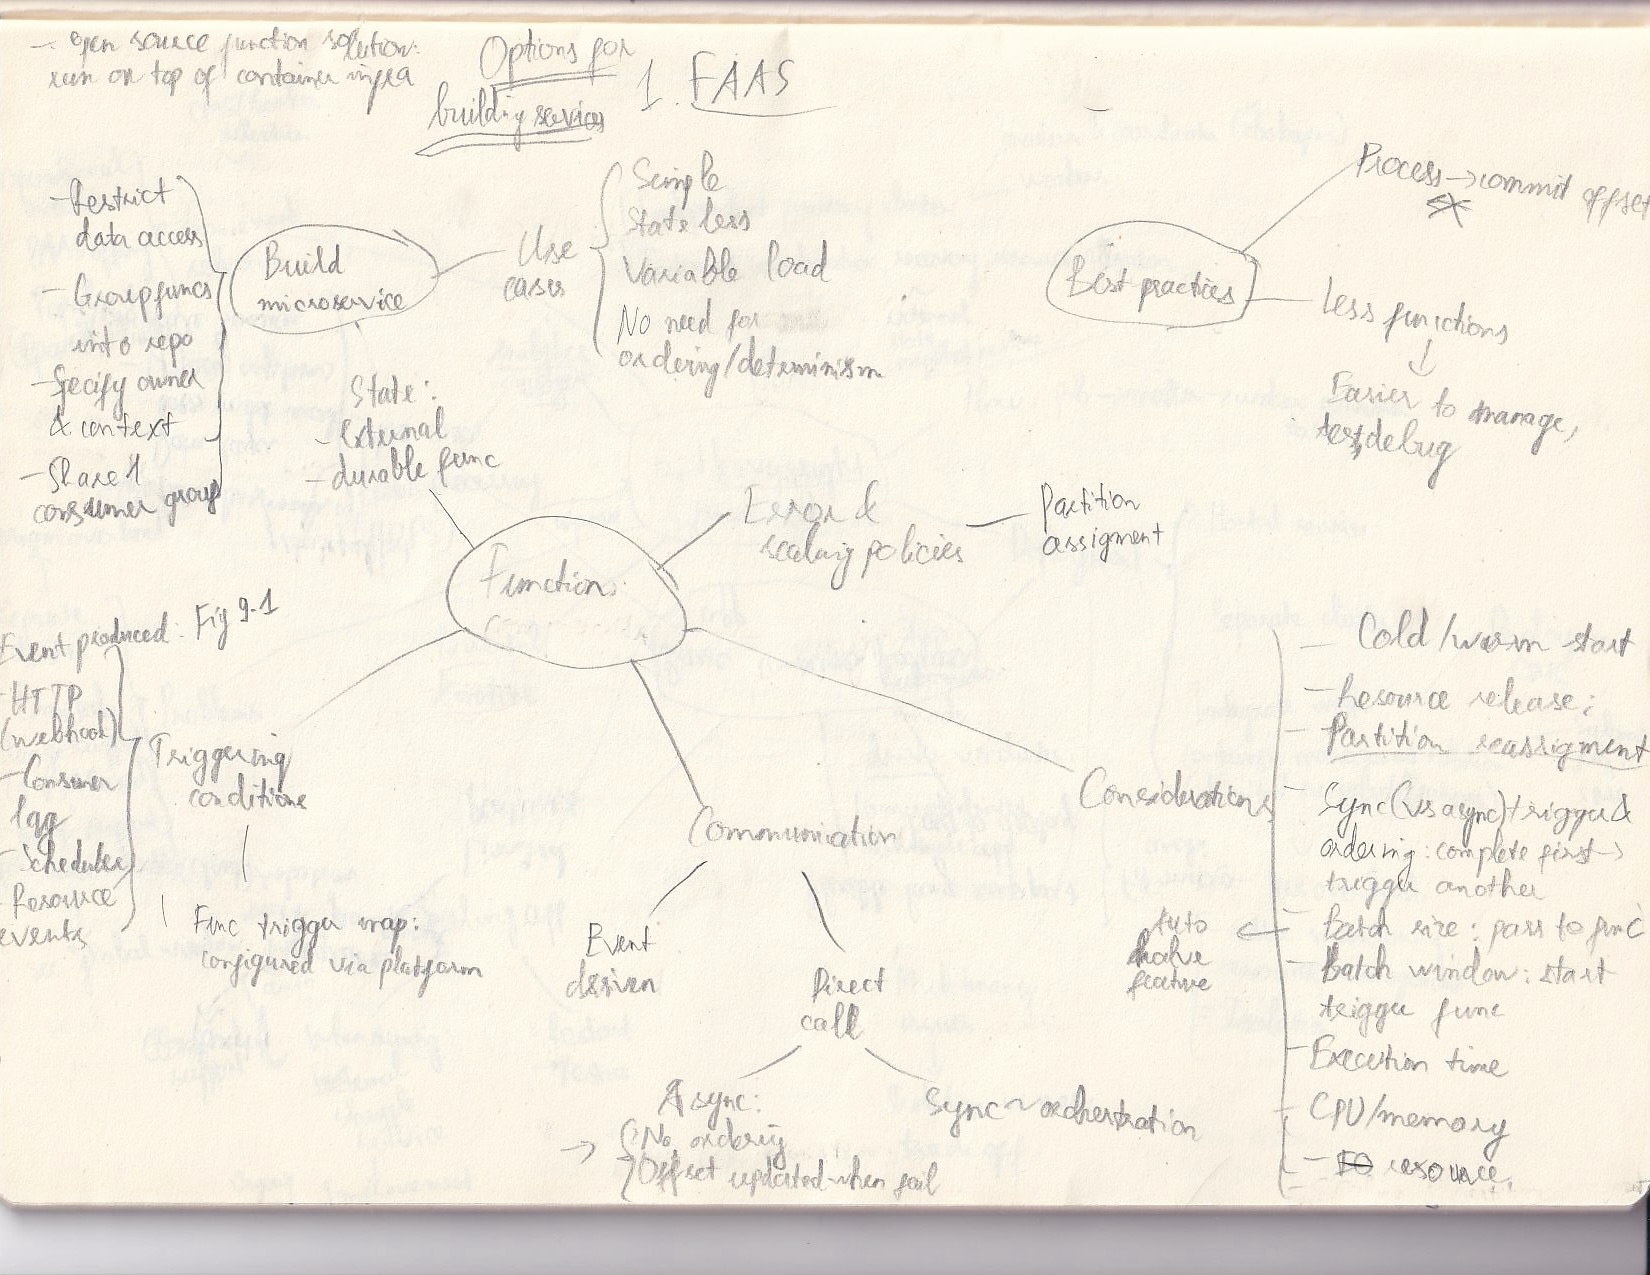 - open source function solution:
run on top of container infra
Options for
building services
1. FAAS
- Restrict
data access
- Group funcs
into repo
- Specify owner
& context
- Share 1
consumer group
Build
microservice
Use
cases
Simple
State less
Variable load
No need for
ordering/determinism
State:
- external
- durable func
Best practices
Process → commit offset
Less functions
↓
Easier to manage,
test, debug
Functions
Error &
scaling policies
Partition
assigment
Event produced: Fig 9-1
- HTTP
(webhook)
- Consumer
lag
- Scheduler
- Resource
events
Triggering
conditions
Func trigger map:
configured via platform
Communication
Event
driven
Direct
call
Async:
→ No ordering
Offset updated when fail
Sync ~ orchestration
Considerations
- Cold/warm start
- Resource release:
- Partition reassigment
- Sync (vs async) trigger &
ordering: complete first →
trigger another
- Batch size: pass to func
- Batch window: start
trigger func
- Execution time
- CPU/memory
- resource.
Auto
halve
feature